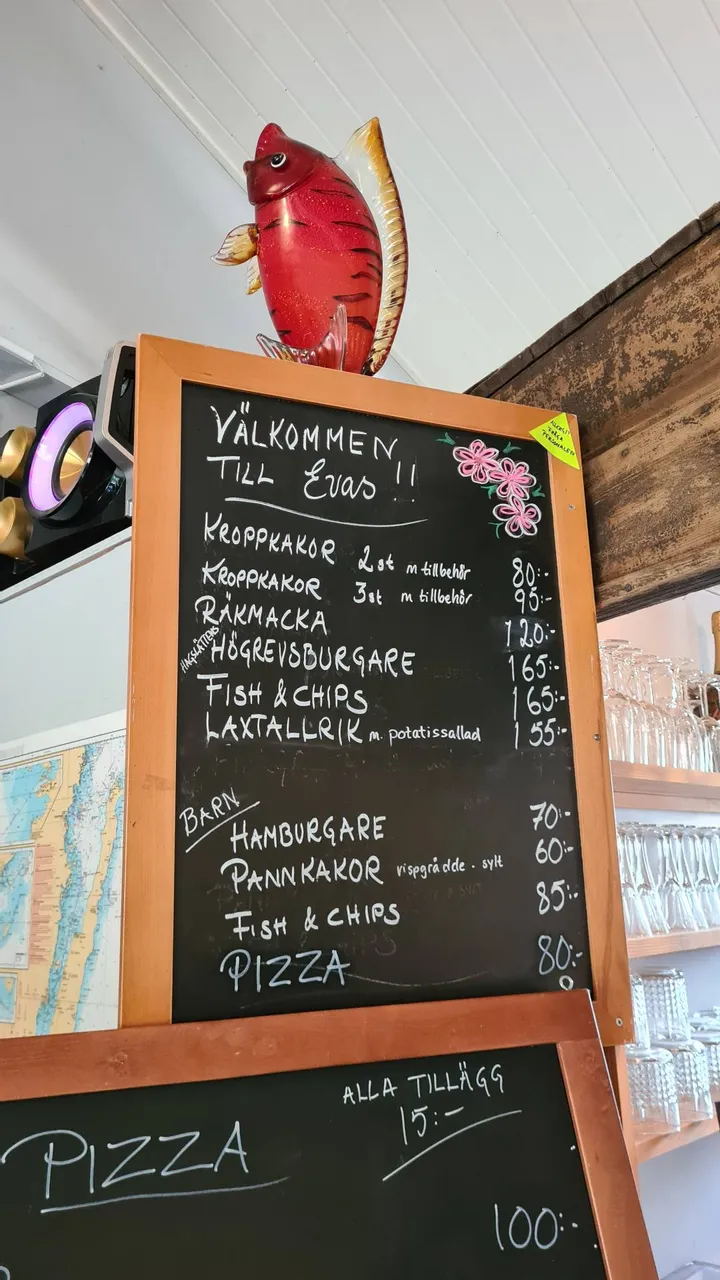 VÄLKOMMEN
TILL Evas !!
ALLERGI?
FRÅGA
PERSONALEN
KROPPKAKOR 2st m tillbehör 80:-
KROPPKAKOR 3st m tillbehör 95:-
RÄKMACKA 120:-
HAGSLÄTTENS HÖGREVSBURGARE 165:-
FISH & CHIPS 165:-
LAXTALLRIK m. potatissallad 155:-
BARN
HAMBURGARE 70:-
PANNKAKOR vispgrädde - sylt 60:-
FISH & CHIPS 85:-
PIZZA 80:-
ALLA TILLÄGG
15:-
PIZZA
100:-